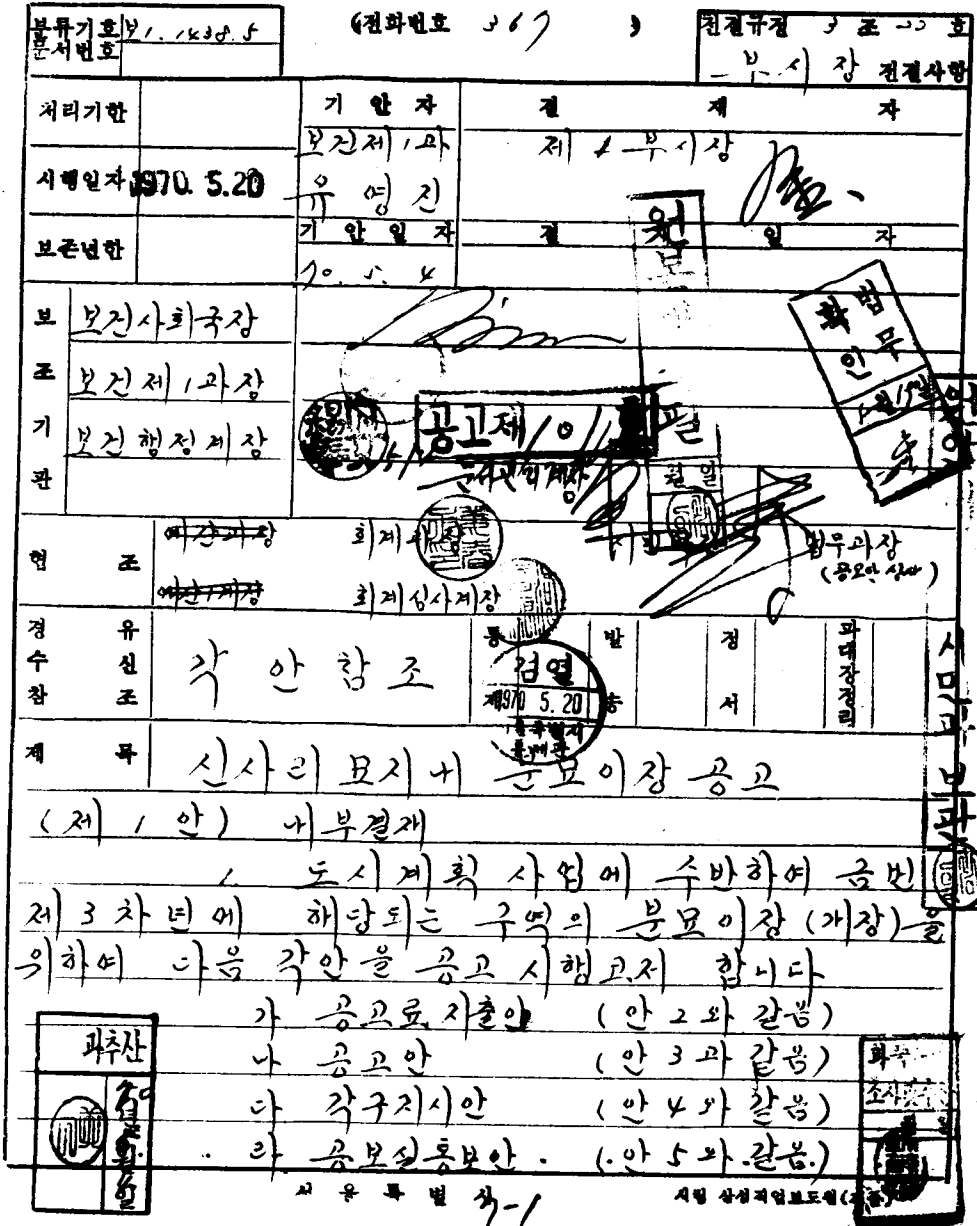 분류기호 보1.1438.5
문서번호
(전화번호 367 )
전결규정 3 조 22 호
부시장 전결사항
처리기한
기안자
결재자
보건제1과
제1부시장
시행일자 1970. 5.20
유영진
기안일자
결일자
보존년한
70. 5. 4
보조기관
보건사회국장
보건제1과장
보건행정계장
공고제101호
원본
필
월일
법무
확인
협조
예산과장
회계과장
법무과장
(공고안 심사)
예산1계장
회계심사계장
경유
수신
참조
각안참조
통제
검열
1970 5.20
발송
정서
과대장정리
제목
신사리 묘지내 분묘이장 공고
(제 1 안) 내부결재
1. 도시계획 사업에 수반하여 금번
제3차년에 해당되는 구역의 분묘이장(개장)을
위하여 다음 각안을 공고 시행고저 합니다
가 공고료 지출안 (안 2와 같음)
나 공고안 (안 3과 같음)
다 각구지시안 (안 4와 같음)
라 공보실홍보안. (안 5와 같음.)
과추산
서울특별시
9-1
시립 삼성직업보도원